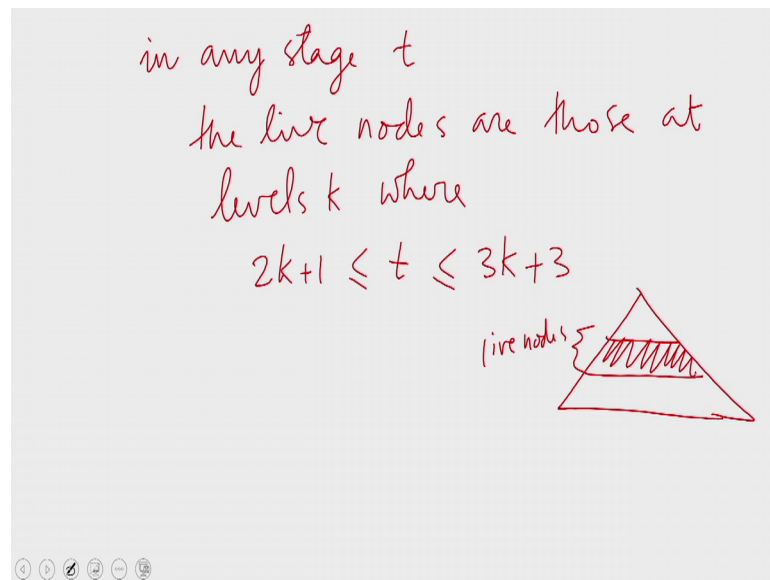 in any stage t
the live nodes are those at
levels k where
2k+1 ≤ t ≤ 3k+3
live nodes